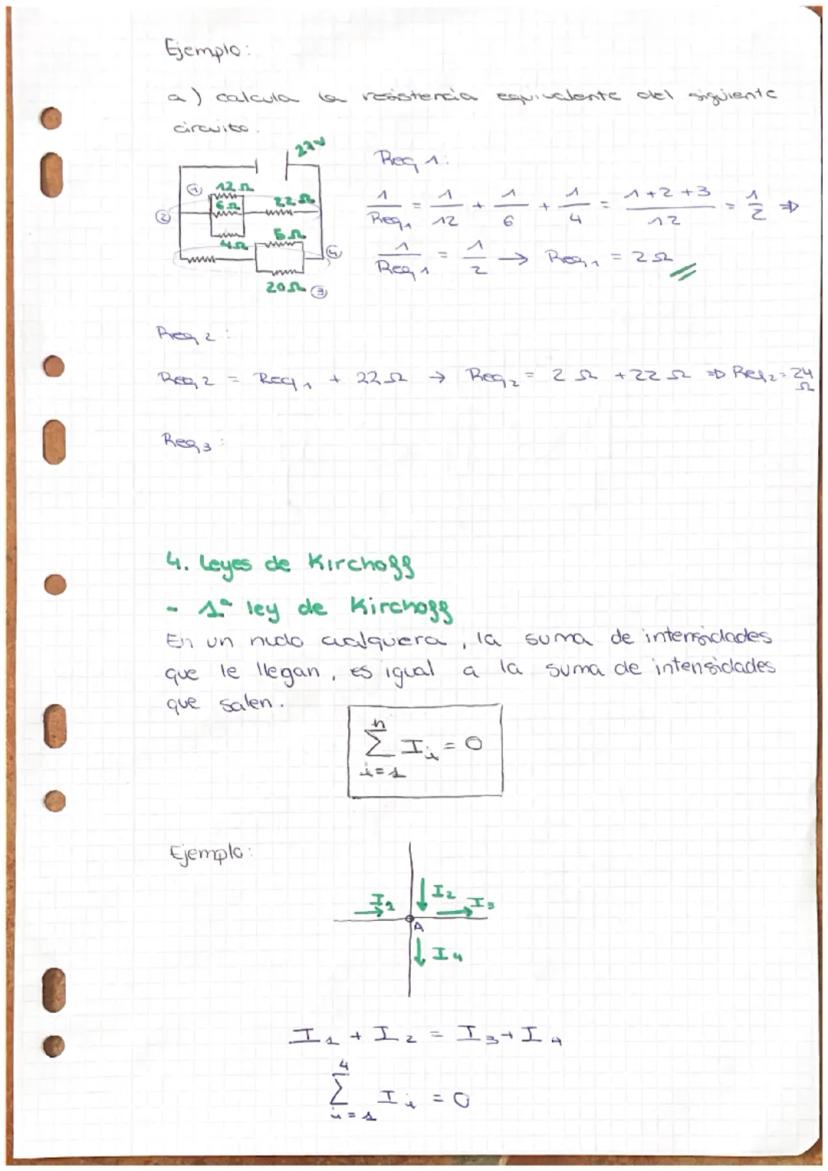 Ejemplo:
a) calcula la resistencia equivalente del siguiente
circuito.
22V
① 12Ω
6Ω 22Ω
②
4Ω 5Ω
④
20Ω ③
Req 1:
1/Req₁ = 1/12 + 1/6 + 1/4 = 1+2+3/12 = 1/2 ⇒
1/Req 1 = 1/2 → Req₁ = 2Ω
Req 2:
Req 2 = Req₁ + 22Ω → Req₂ = 2Ω + 22Ω ⇒ Req₂ = 24
Ω
Req₃:
4. Leyes de Kirchoff
- 1ª ley de Kirchoff
En un nudo cualquiera, la suma de intensidades
que le llegan, es igual a la suma de intensidades
que salen.
n
Σ Iᵢ = 0
i=1
Ejemplo:
I₁ I₂ I₃
A
I₄
I₁ + I₂ = I₃ + I₄
4
Σ Iᵢ = 0
i=1